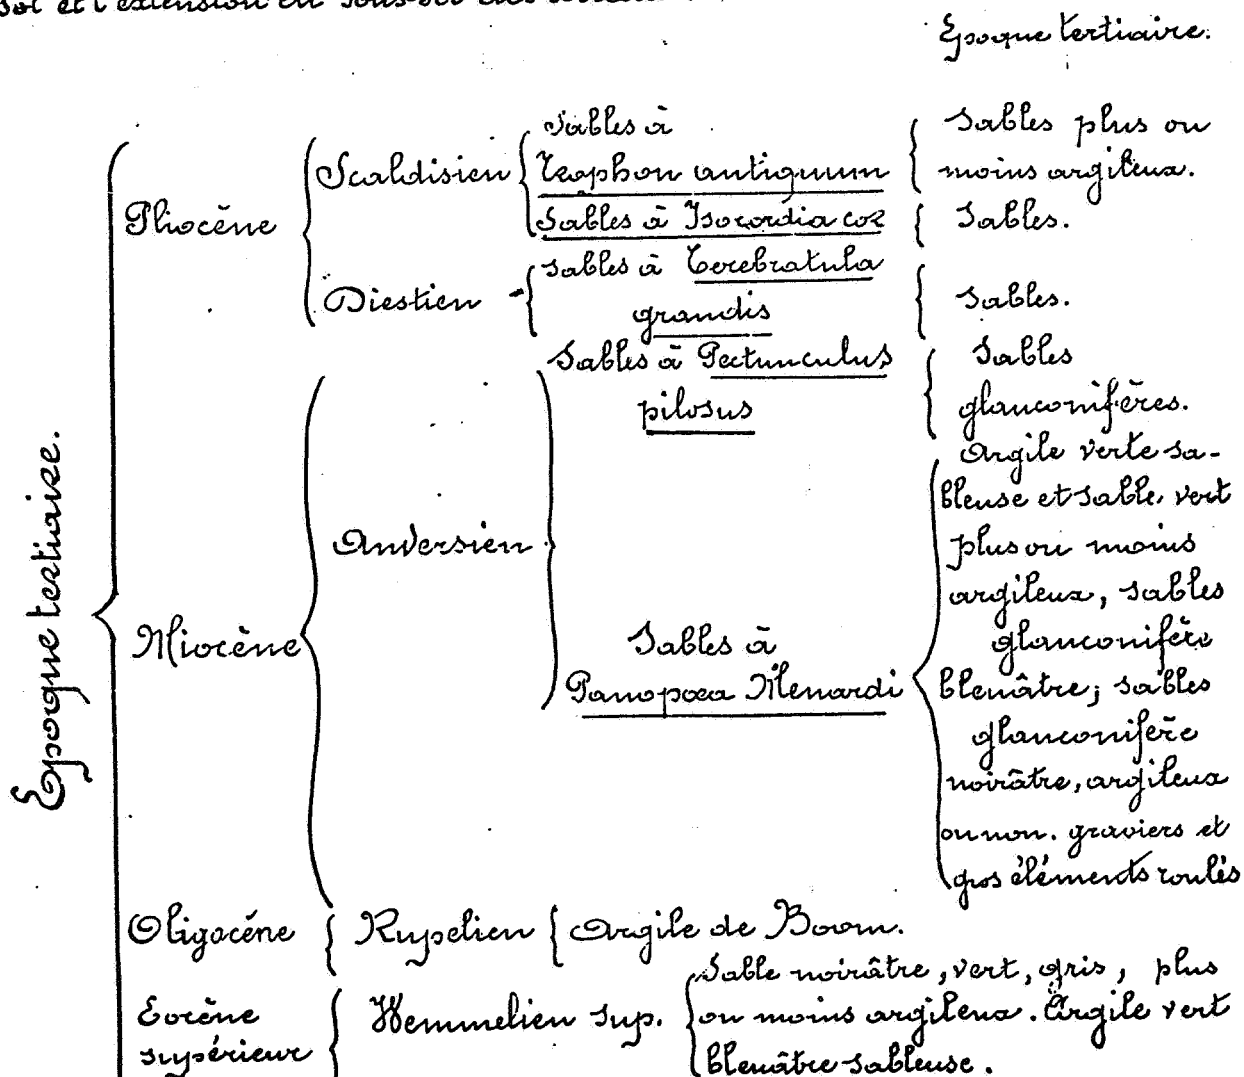 sol et l'extension en sous-sol des
Epoque tertiaire.
Epoque tertiaire.
Pliocène
Scaldisien
Sables à
Trophon antiquum
Sables plus ou
moins argileux.
Sables à Isocordia cor
Sables.
Diestien
Sables à Terebratula
grandis
Sables.
Miocène
Anversien
Sables à Pectunculus
pilosus
Sables
glauconifères.
Sables à
Panopœa Menardi
Argile verte sa-
bleuse et sable vert
plus ou moins
argileux, sables
glauconifère
bleuâtre; sables
glauconifère
noirâtre, argileux
ou non. graviers et
gros éléments roulés
Oligocène
Rupelien
Argile de Boom.
Eocène
supérieur
Wemmelien sup.
Sable noirâtre, vert, gris, plus
ou moins argileux. Argile vert
bleuâtre sableuse.